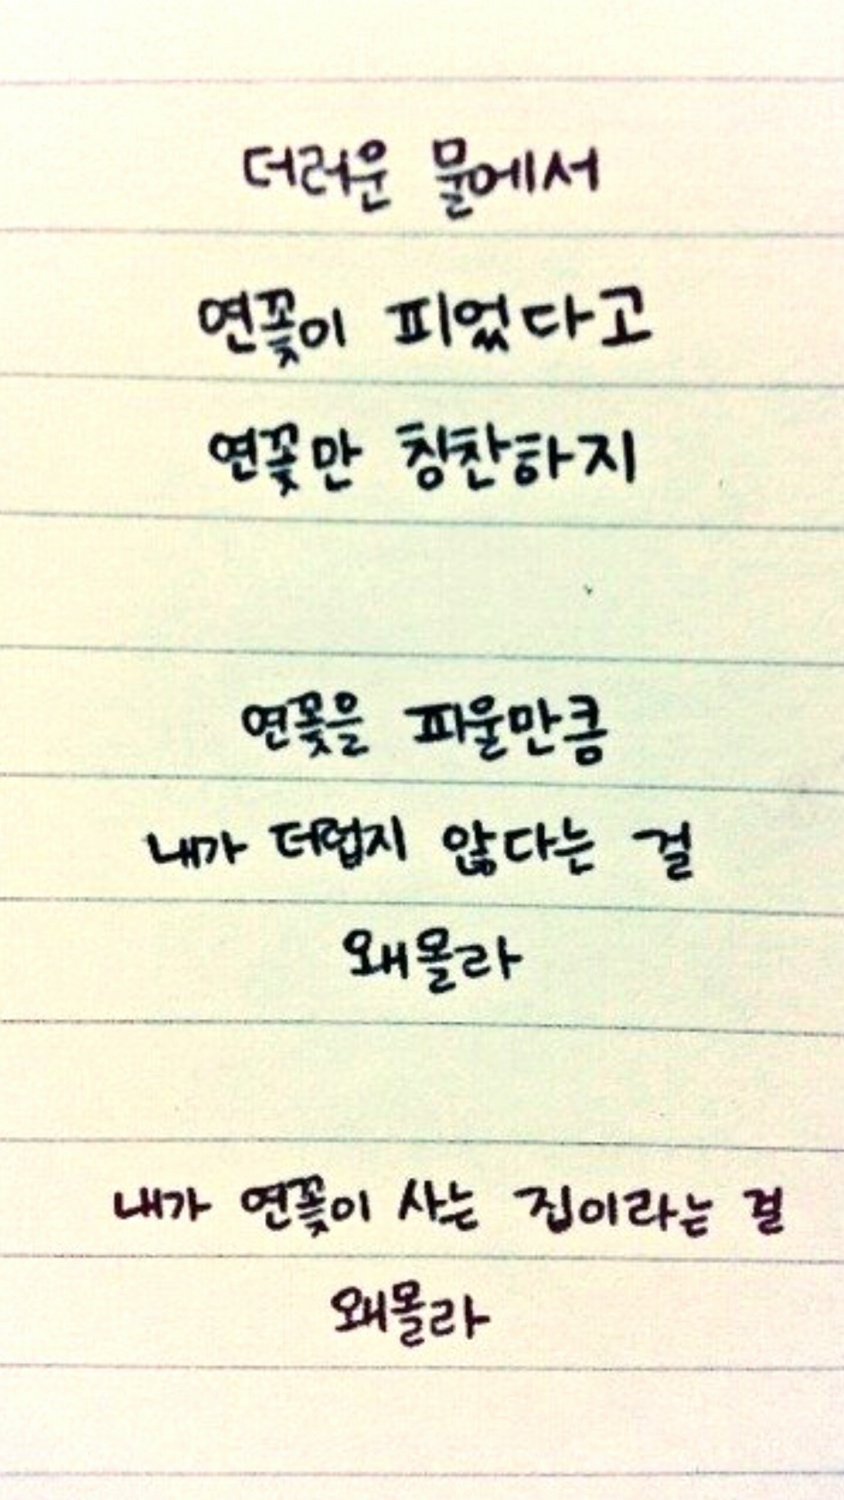 더러운 물에서
연꽃이 피었다고
연꽃만 칭찬하지
연꽃을 피울만큼
내가 더럽지 않다는 걸
왜몰라
내가 연꽃이 사는 집이라는 걸
왜몰라